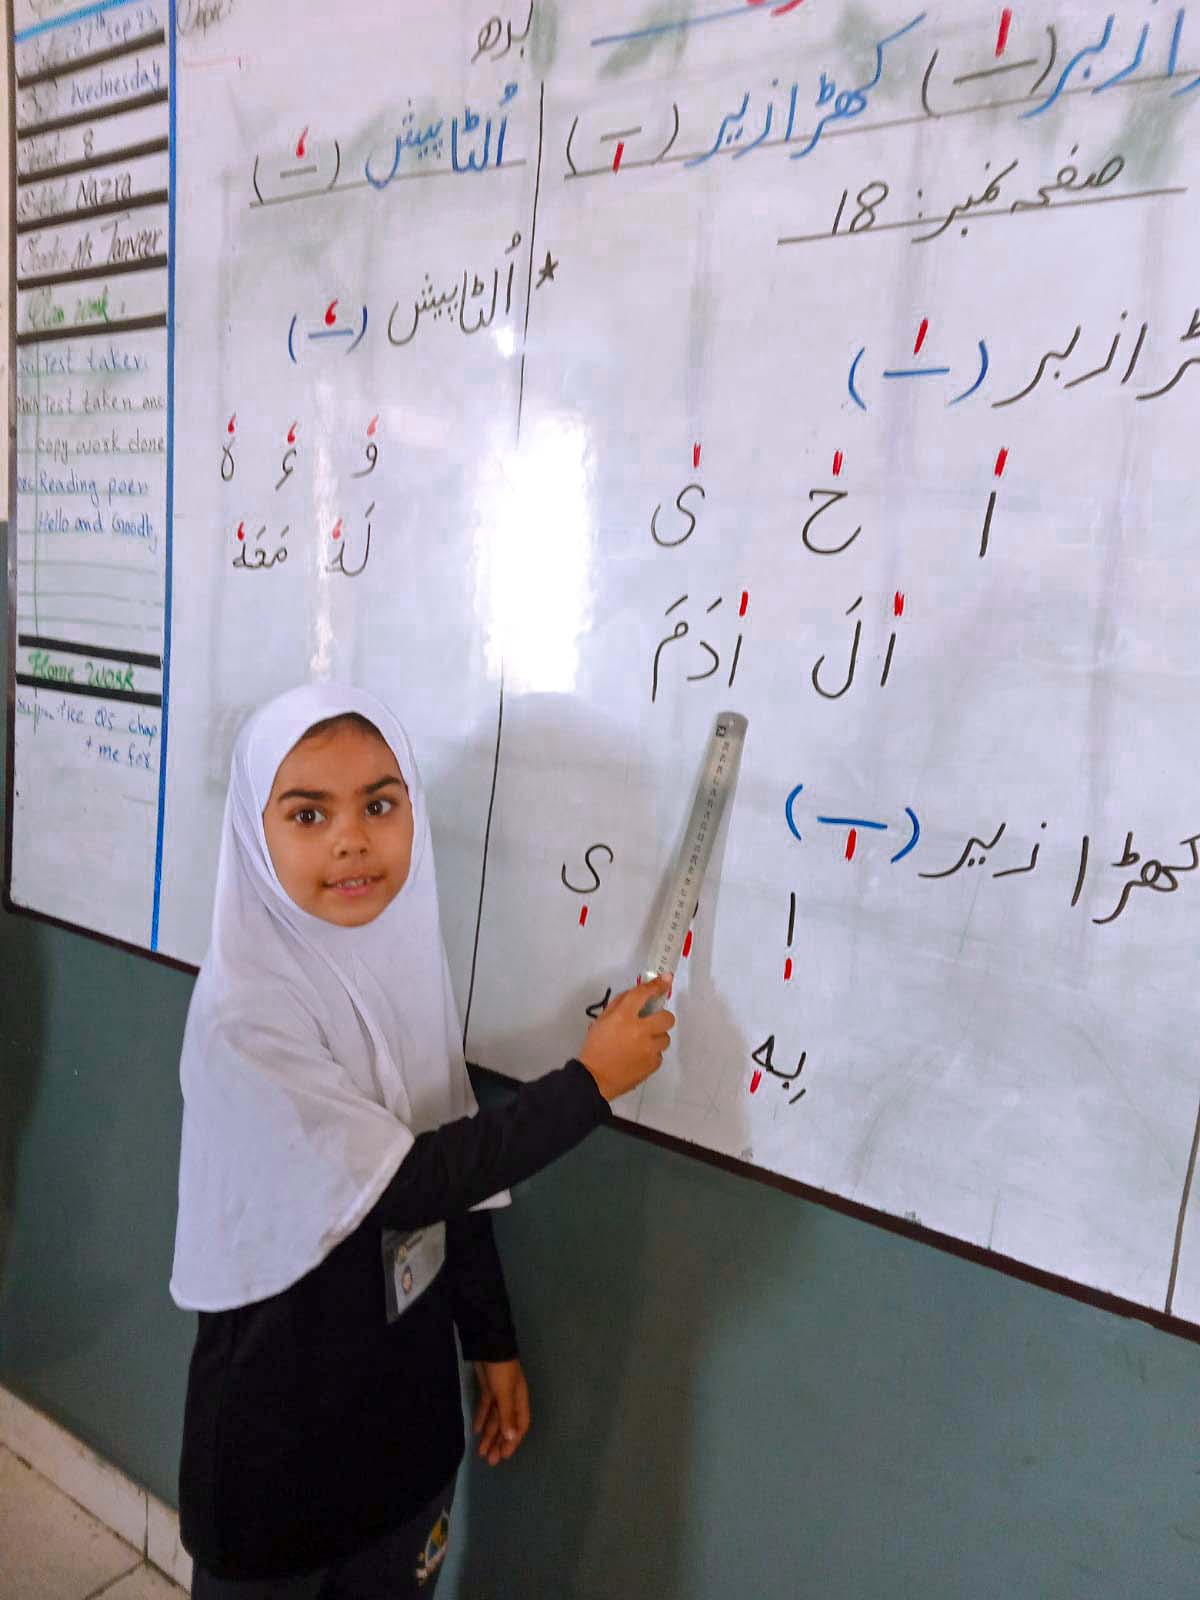 27th Sep 23
Wednesday
8
Nazra
Ms Tanveer
Class Work:
Test taken.
Test taken and
copy work done
Reading poem
Hello and Goodby
Home Work
chap
me for
بدھ
کھڑا زیر (ٖ) زبر (ٰ)
اُلٹا پیش (ٗ)
صفحہ نمبر: 18
* اُلٹا پیش (ٗ)
وٗ ءٗ هٗ
لَهٗ مَعَهٗ
ڑا زبر (ٰ)
اٰ حٰ یٰ
اٰلَ اٰدَمَ
کھڑا زیر (ٖ)
اٖ یٖ
بِهٖ